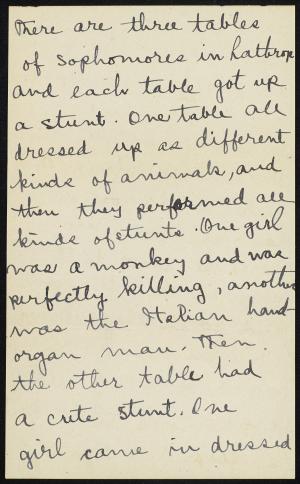 There are three tables
of Sophomores in Lathrop
and each table got up
a stunt. One table all
dressed up as different
kinds of animals, and
then they performed all
kinds of stunts. One girl
was a monkey and was
perfectly killing, another
was the Italian hand-
organ man. Then
the other table had
a cute stunt. One
girl came in dressed